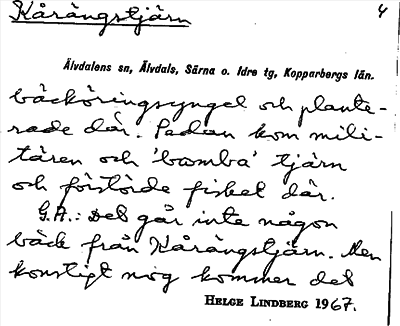 Kårängstjärn 4
Älvdalens sn, Älvdals, Särna o. Idre tg, Kopparbergs län.
bäcköringsyngel och plante-
rade där. Sedan kom mili-
tären och 'bomba' tjärn
och förstörde fisket där.
G.A.: Det går inte någon
bäck från Kårängstjärn. Men
konstigt nog kommer det
HELGE LINDBERG 1967.